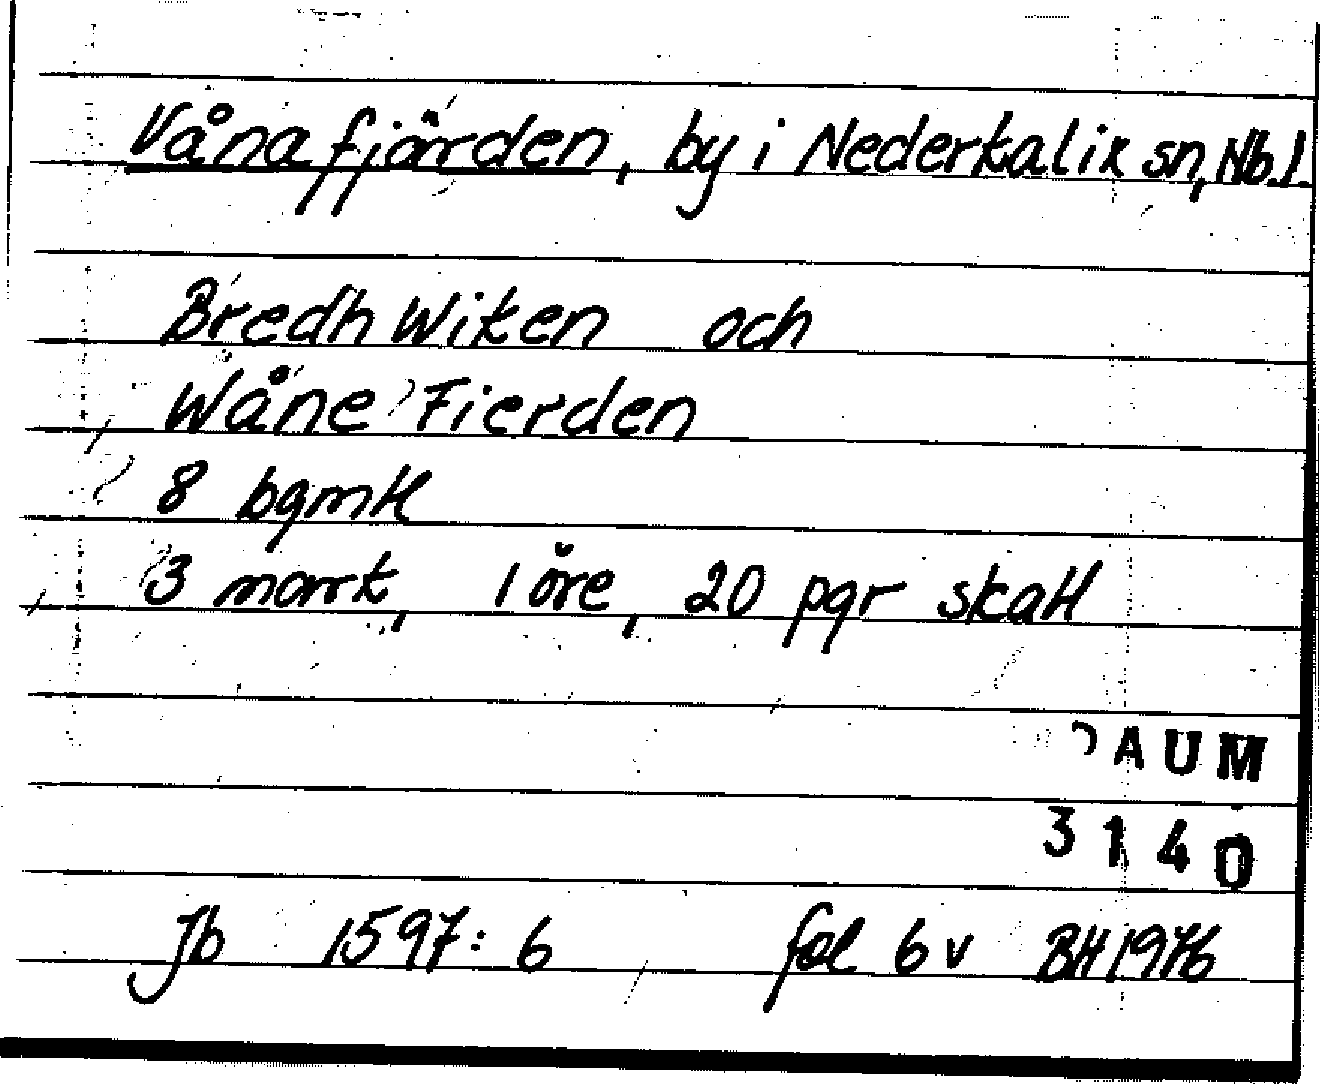 Vånafjärden, by i Nederkalix sn, Nb.l.
Bredh Wiken och
Wåne Fierden
8 bgmtl
3 mark, 1 öre, 20 pgr skatt
DAUM
3140
Jb 1597:6 fol 6 v BH 1976